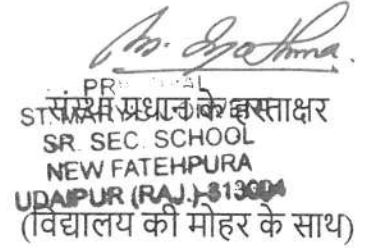 संस्था प्रधान के हस्ताक्षर
SR. SEC. SCHOOL
NEW FATEHPURA
UDAIPUR (RAJ.)-313004
(विद्यालय की मोहर के साथ)